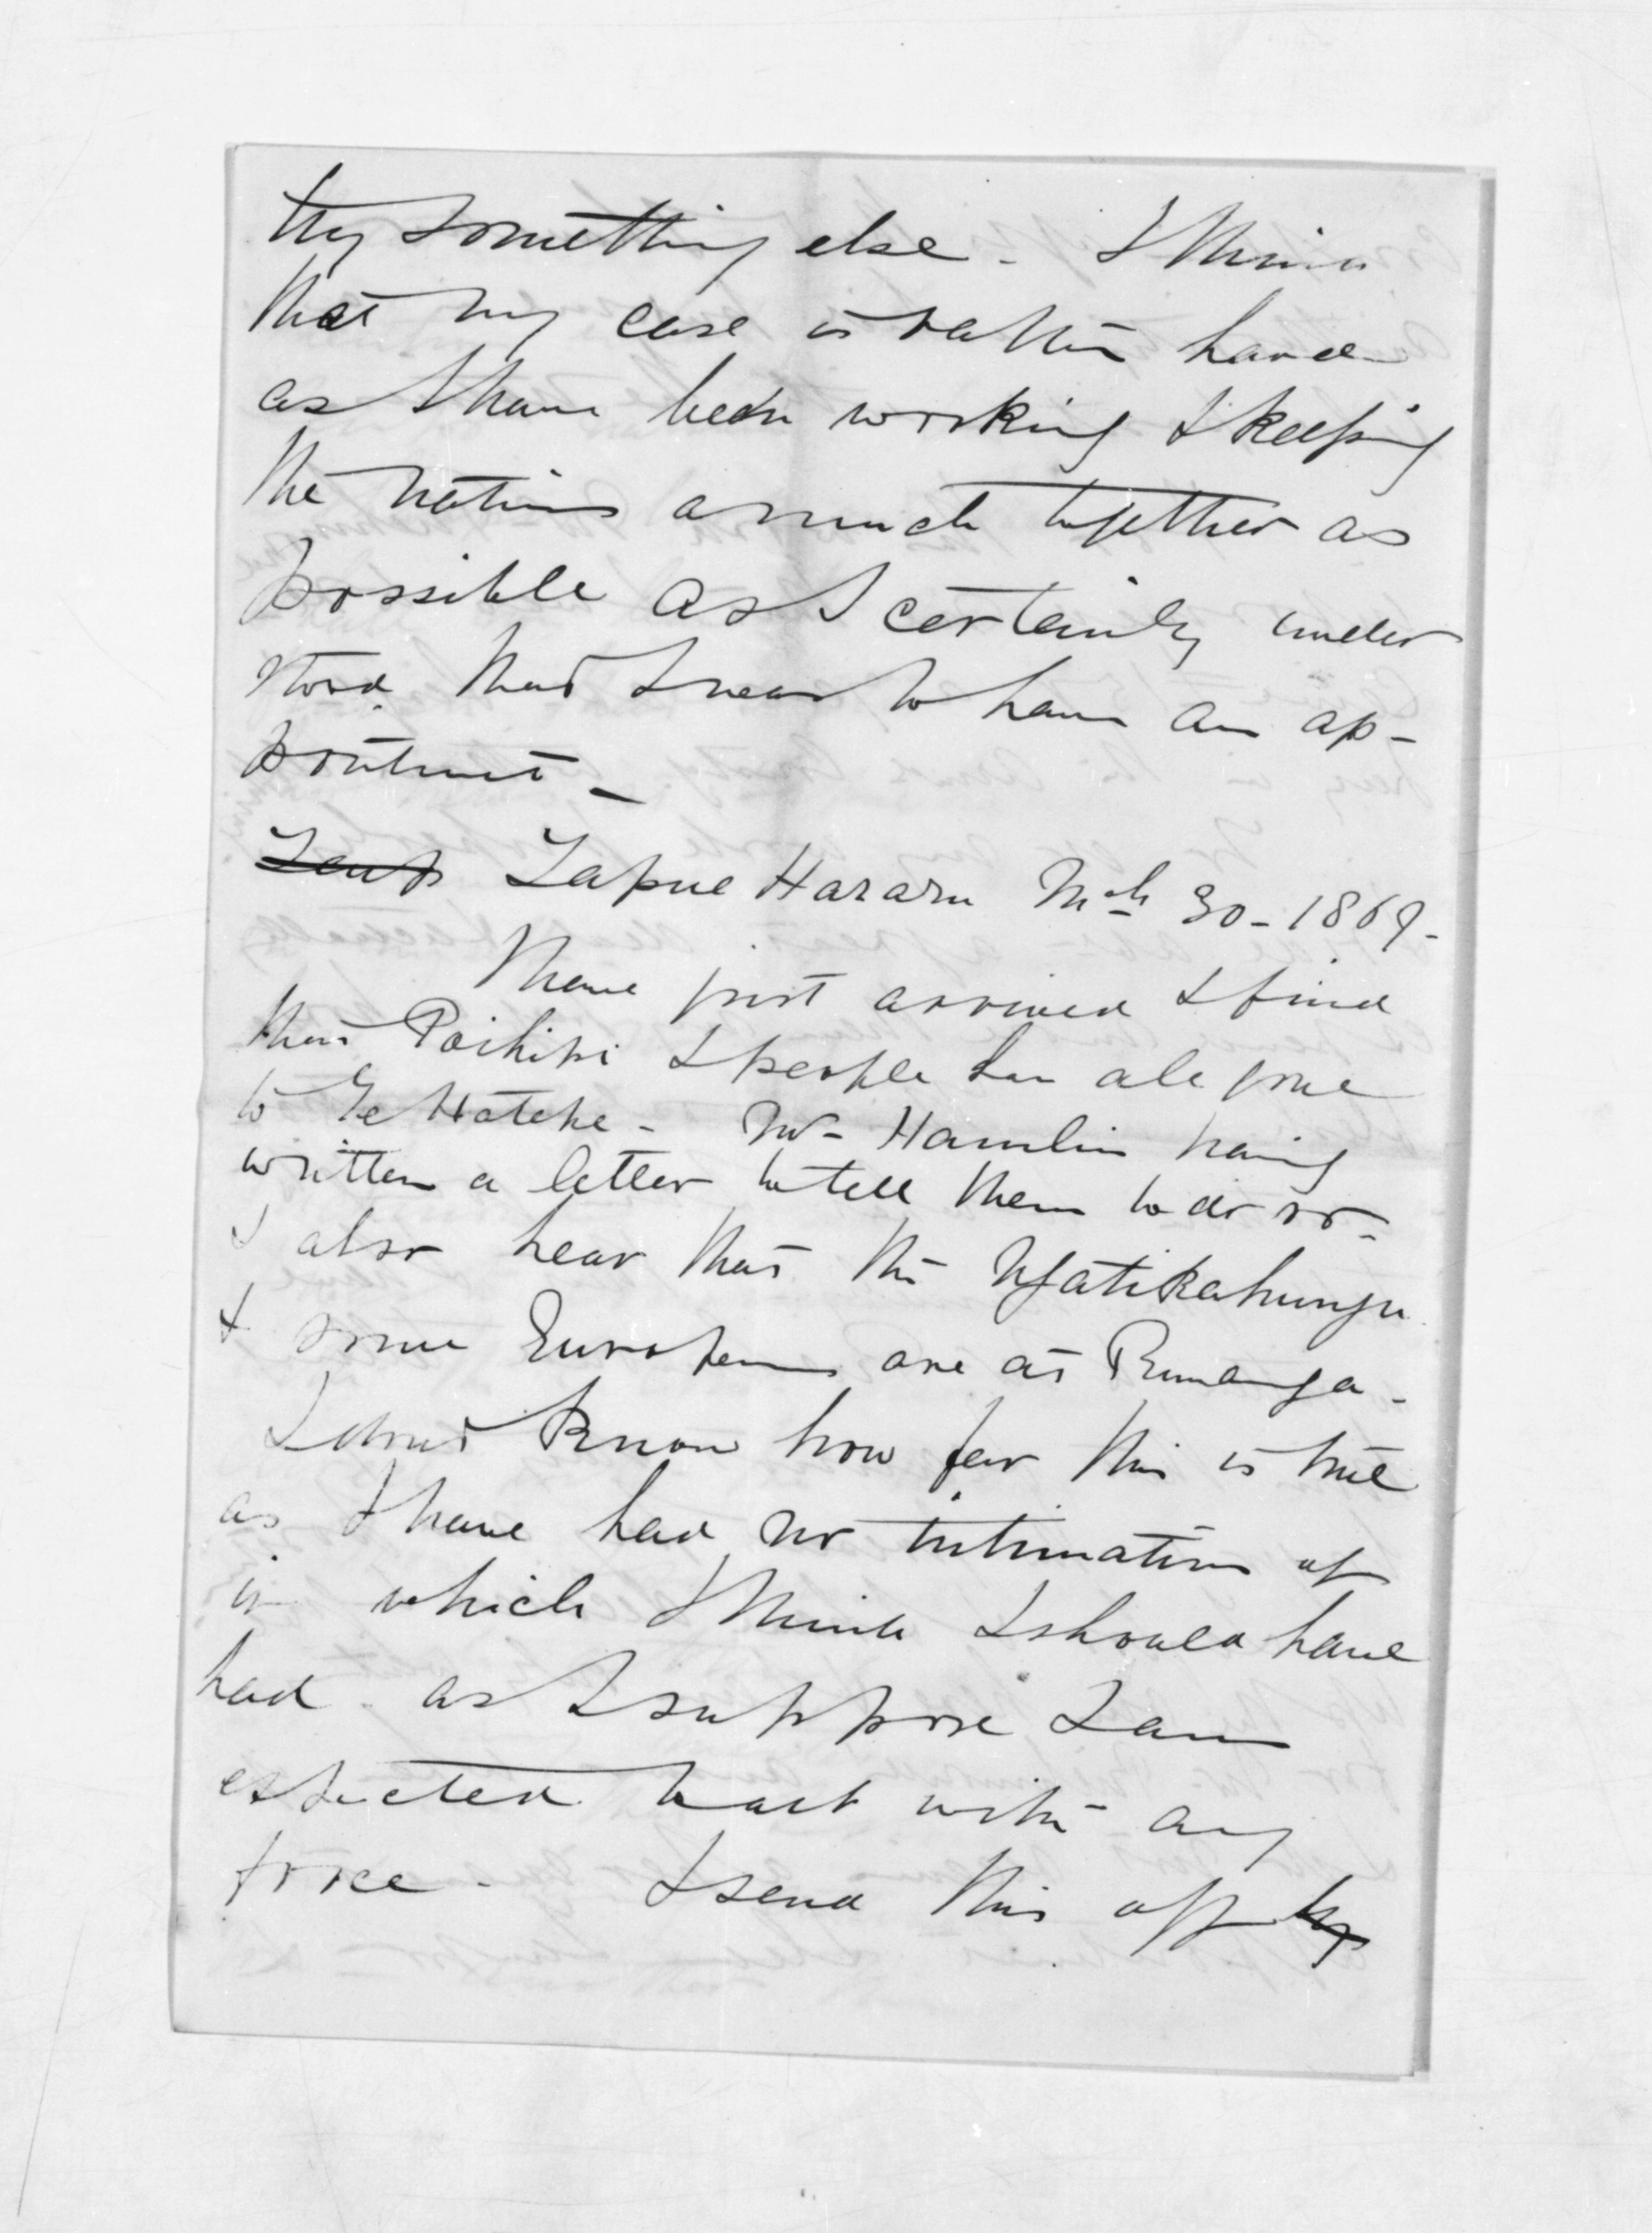 try something else - I think
that my case is rather hard
as I have been working & keeping
the natives as much together as
possible as I certainly under
stood that I was to have an ap-
pointment -
Tapue Hararu Mch 30 - 1869 -
I have just arrived & find
that Poihipi & people have all gone
to Te Hatepe - Mr Hamlin having
written a letter to tell them to do so -
I also hear that the Ngatikahungu
& some Europeans are at Runanga -
I do not know how far this is true
as I have had no intimation of
it which I think I should have
had as I suppose I am
expected to act with any
force - I send this off